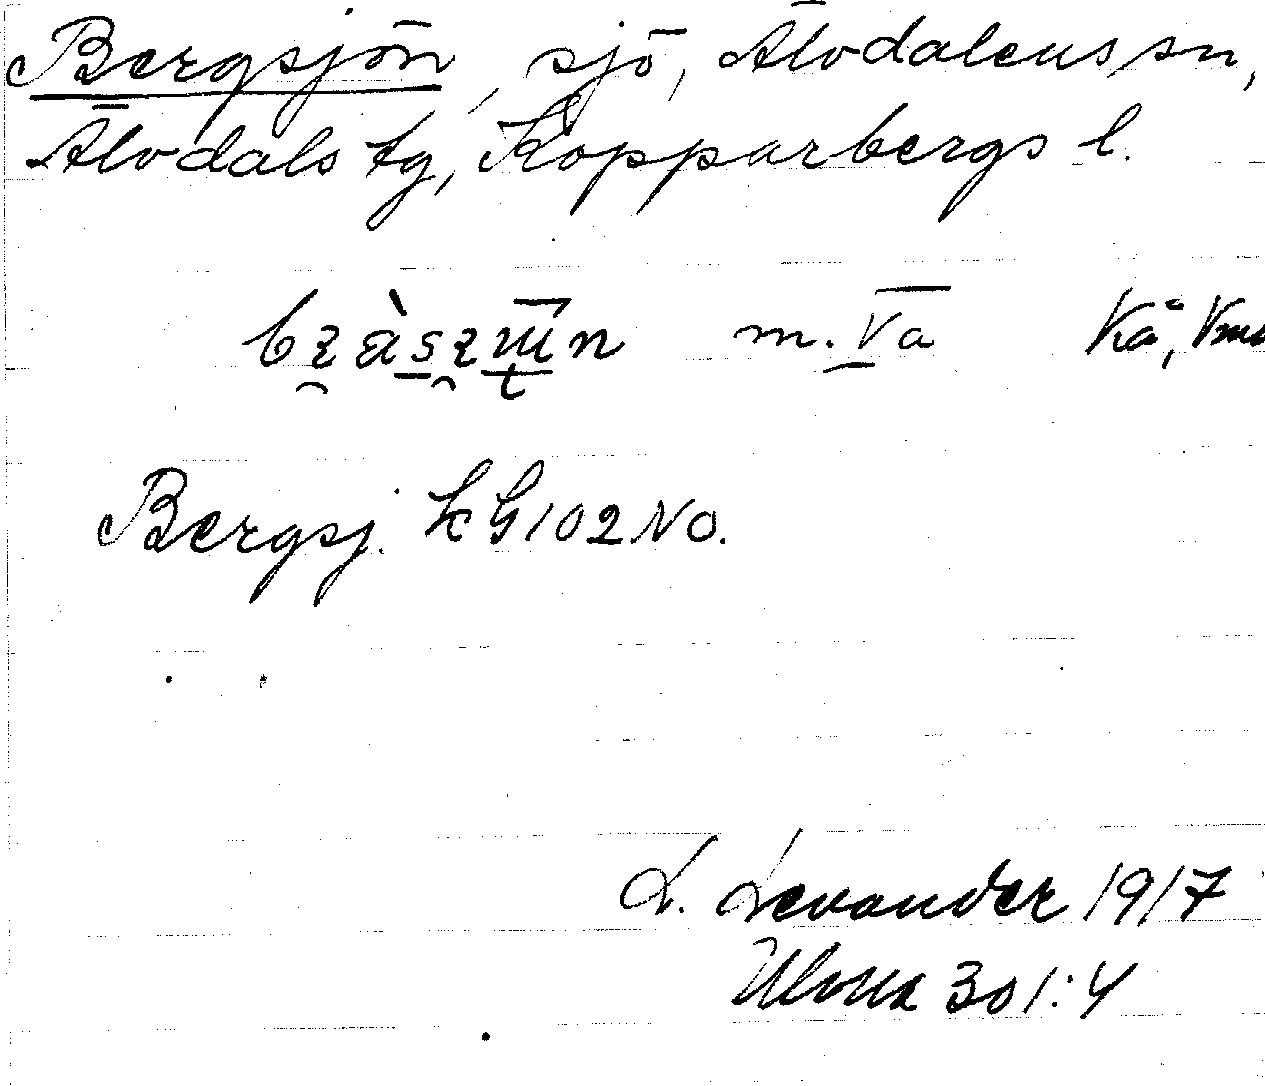 Bergsjön, sjö, Älvdalens sn,
Älvdals tg, Kopparbergs l.
m. Va Kå,
Bergsj. kG102NO.
L. Levander 1917
301:4